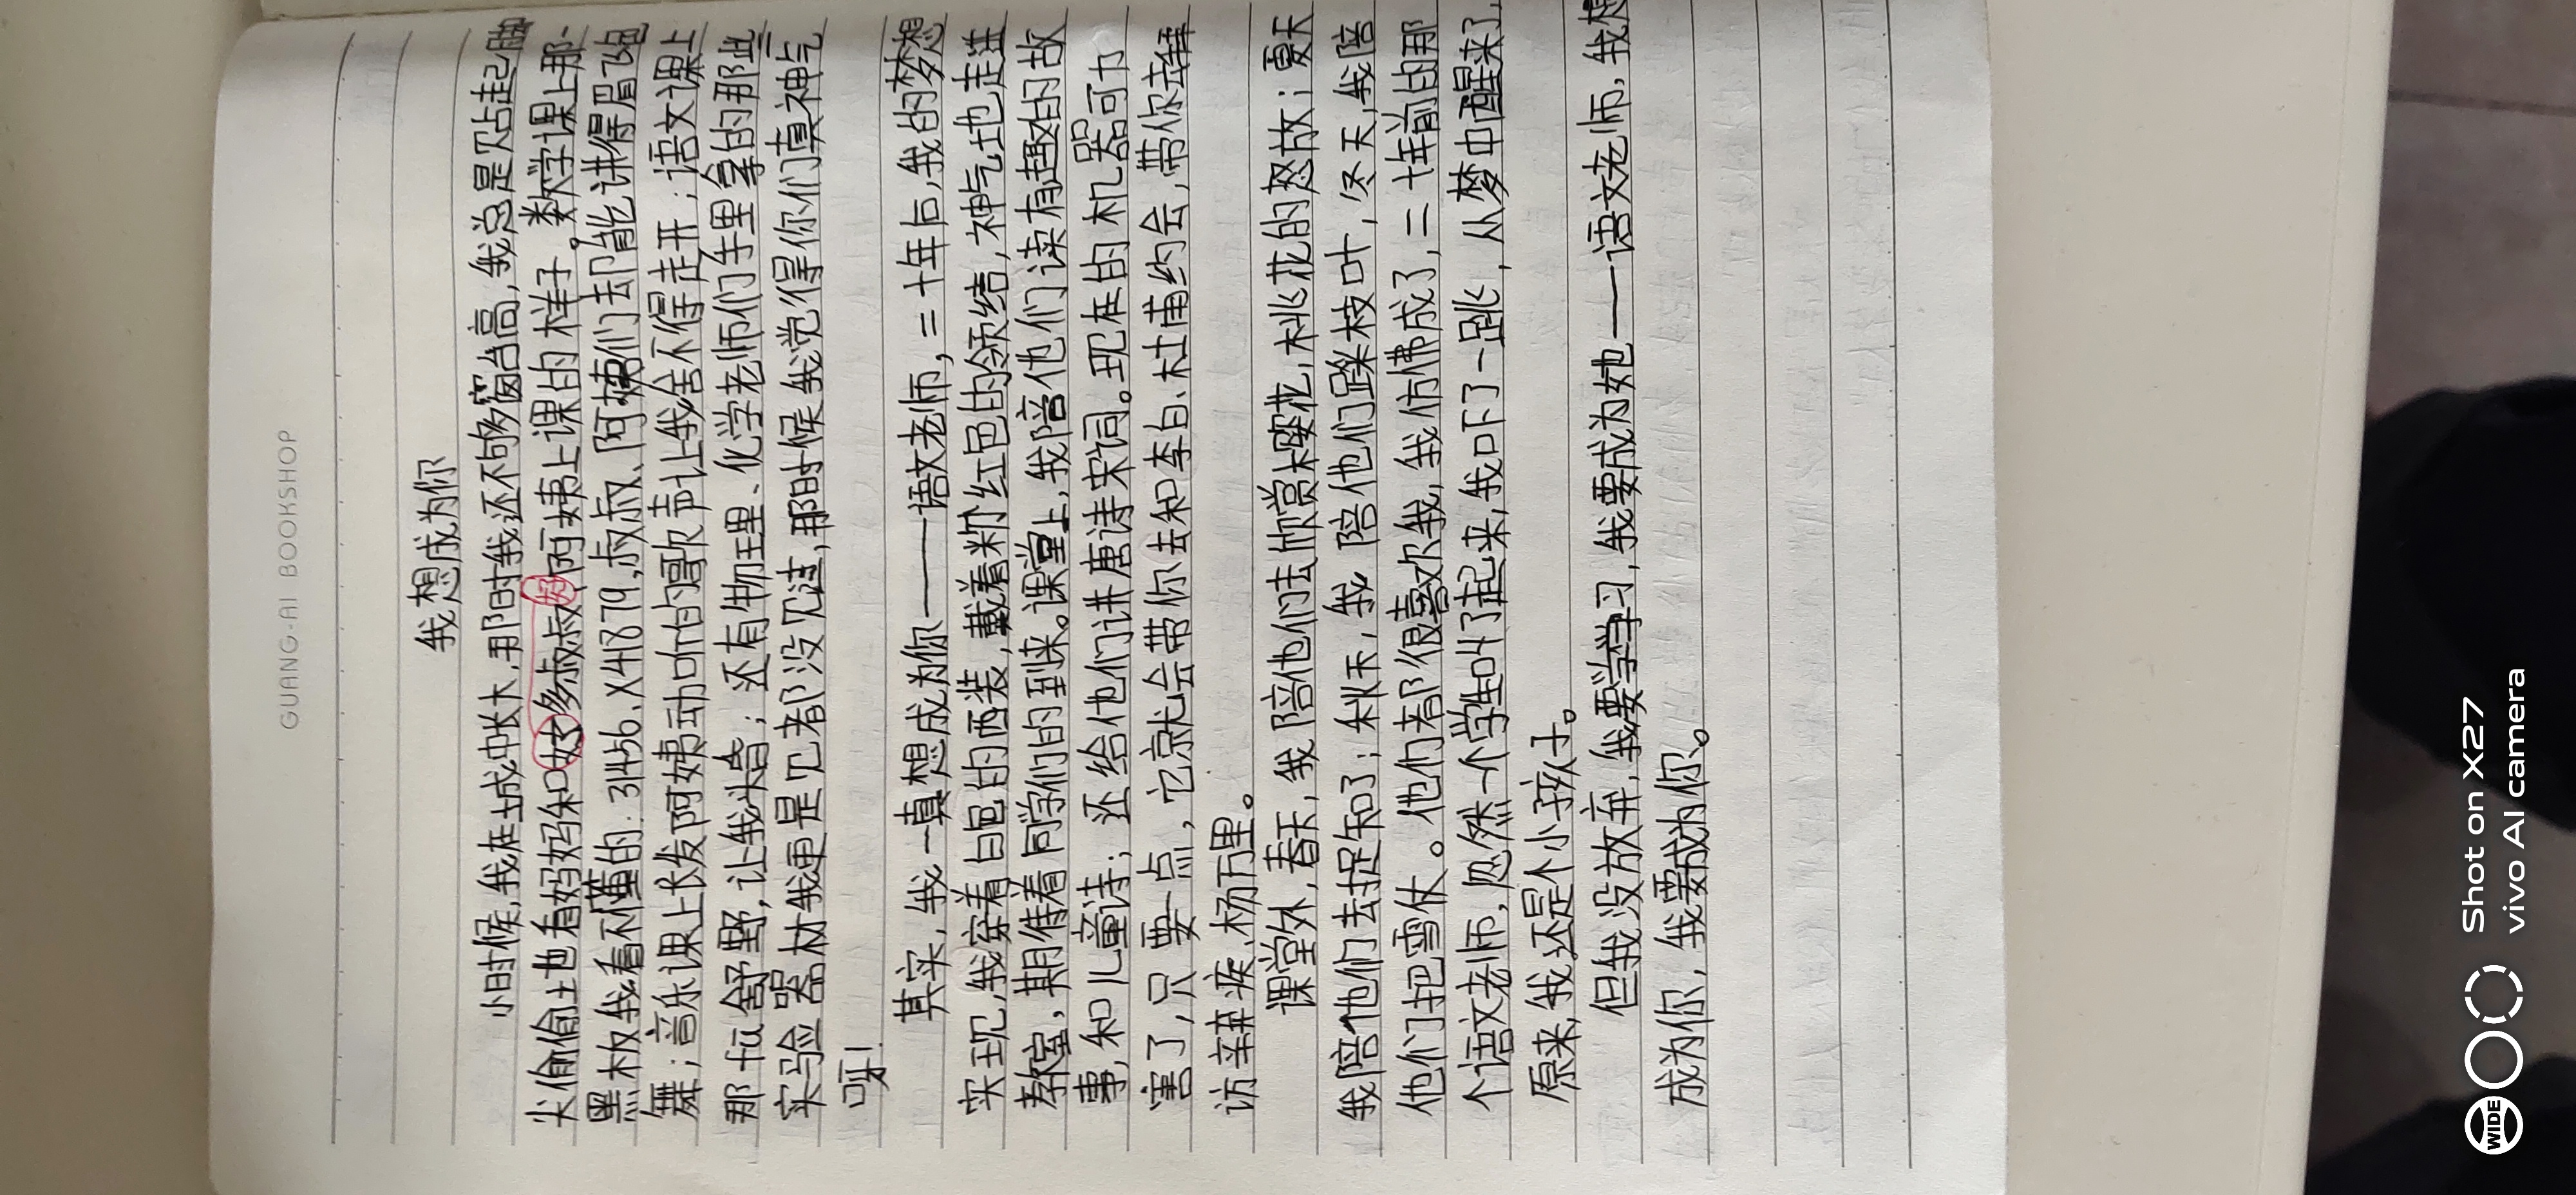 GUANG·AI BOOKSHOP
我想成为你
小时候,我在城中长大,那时我还不够窗台高,我总是踮起脚
尖偷偷地看妈妈和好多叔叔、阿姨上课的样子。数学课上那
黑板我看不懂的:31456.X41879,叔叔、阿姨们却能讲得眉飞色
舞;音乐课上长发阿姨动听的歌声让我舍不得走开;语文课上
那 舒野,让我 ;还有物理、化学老师们手里拿的那些
实验器材我更是见都没见过,那时候我觉得你们真神气
呀!
其实,我一真想成为你——语文老师,二十年后,我的梦想
实现,我穿着白色的西装,戴着粉红色的领结,神气地走进
教室,期待着同学们的到来。课堂上,我陪他们读有趣的故
事,和儿童诗;还给他们讲唐诗宋词。现在的机器可
害了,只要一点,它就会带你去和李白、杜甫约会,带你去拜
访辛弃疾、杨万里。
课堂外,春天,我陪他们去欣赏樱花,桃花的怒放;夏天
我陪他们去捉知了;秋天,我陪他们踩枝叶,冬天,我陪
他们打把雪仗。他们都很喜欢我,我仿佛成了,二十年前的那
个语文老师,忽然一个学生叫了起来,我吓了一跳,从梦中醒来了,
原来,我还是个小孩子。
但我没放弃,我要学学习,我要成为她——语文老师,我想
成为你,我要成为你。
Shot on X27
vivo AI camera
WIDE